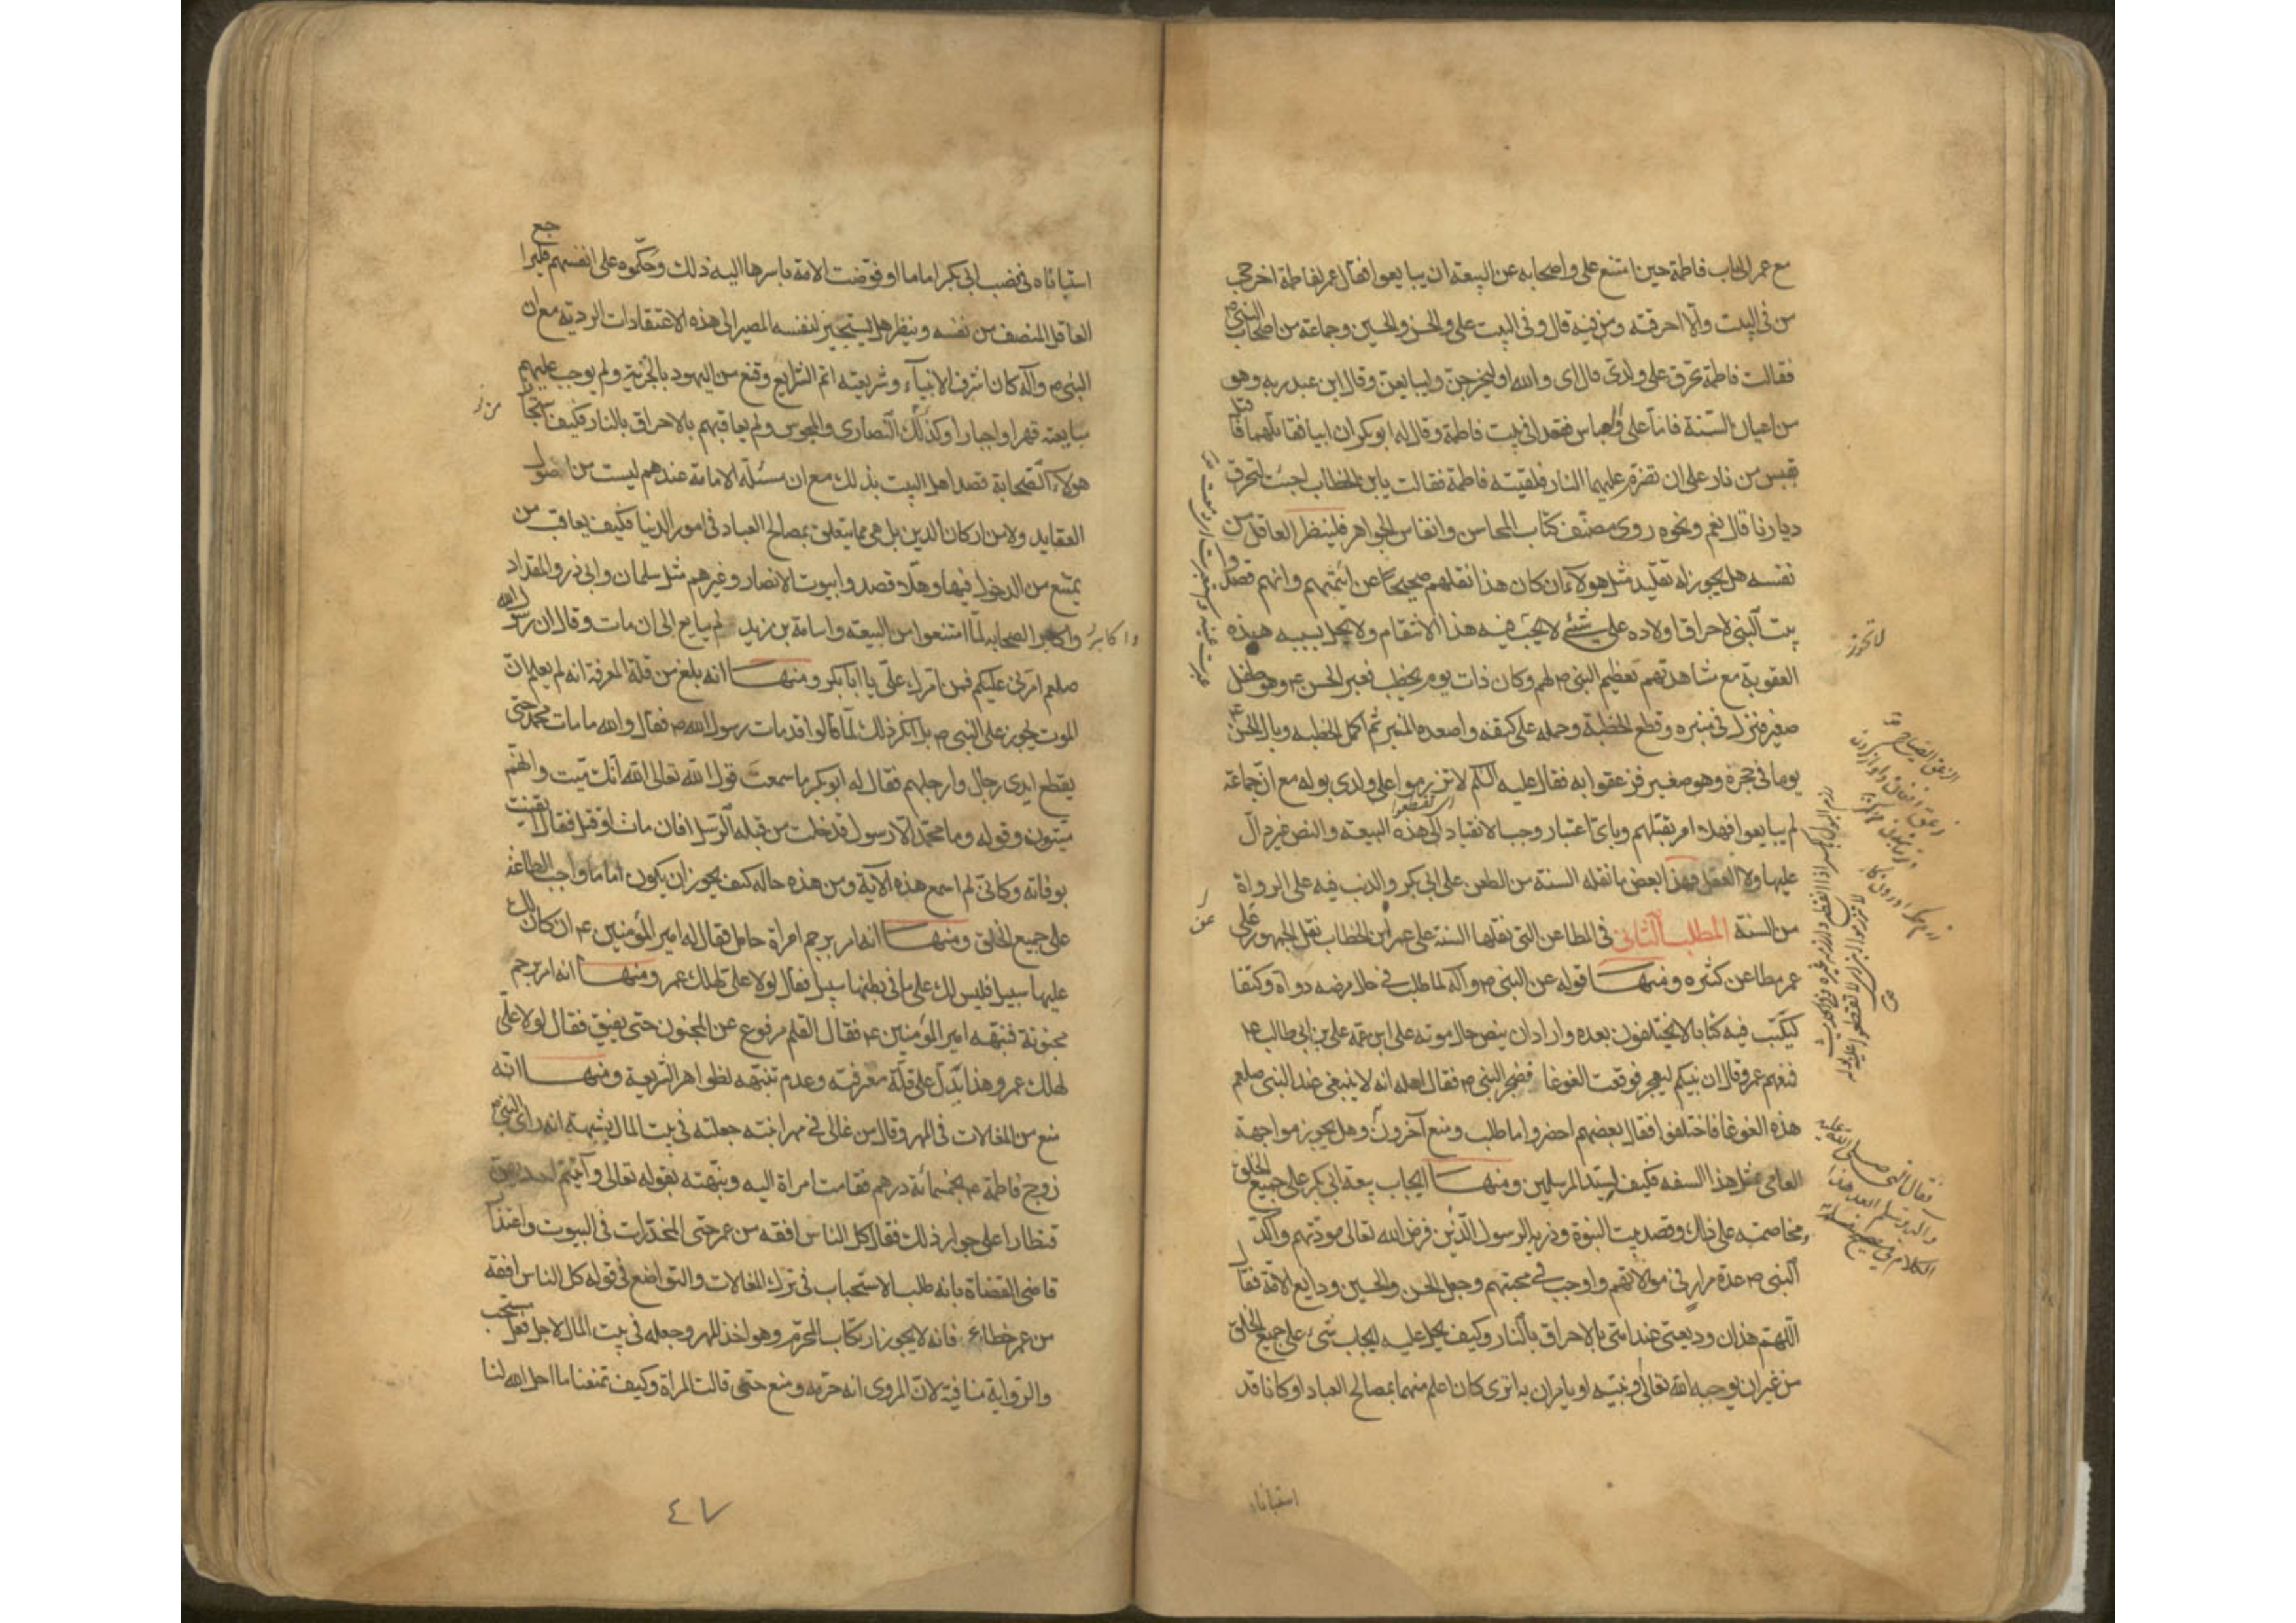 مع عمر الى باب فاطمة حين امتنع على واصحابه عن البيعة ان يبايعوا فقال عمر لفاطمة اخرجى
من فى البيت والا احرقته ومن فيه قال وفى البيت على والحسن والحسين وجماعة من اصحاب النبى ص
فقالت فاطمة تحرق على ولدى قال اى والله او ليخرجن وليبايعن وقال ابن عبد ربه وهو
من اعيان السنة فاما على والعباس فقعدا فى بيت فاطمة وقال له ابو بكر ان ابيا فقاتلهما فاقبل
بقبس من نار على ان تضرم عليهما النار فلقيته فاطمة فقالت يا بن الخطاب اجئت لتحرق
ديارنا قال نعم ونحوه روى مصنف كتاب المحاسن وانفاس الجواهر فلينظر العاقل من
نفسه هل يجوز له تقليد مثل هولاء ان كان هذا نقلهم صحيحا عن ائمتهم وانهم قصدوا
بيت النبى لاحراق اولاده على شئ لا يجب فيه هذا الانتقام ولا يحل بسببه هذه
العقوبة مع مشاهدتهم تعظيم النبى ص لهم وكان ذات يوم يخطب فعبر الحسن ع وهو طفل
صغير فنزل فى منبره وقطع الخطبة وحمله على كتفه واصعده المنبر ثم اكمل الخطبه وبال الحسن ع
يوما فى حجره وهو صغير فزعقوا به فقال عليه السلم لا تزرموا على ولدى بوله مع ان جماعة
لم يبايعوا فهلا امر بقتلهم وباى اعتبار وجب الانقياد الى هذه البيعة والنص غير دال
عليها ولا العقل فهذا بعض ما نقله السنة من الطعن على ابى بكر والذنب فيه على الرواة
من السنة المطلب الثانى فى المطاعن التى نقلها السنة على عمر ابن الخطاب نقل الجمهور على
عمر مطاعن كثيره ومنها قوله عن النبى ص وآله لما طلب فى حال مرضه دواة وكتفا
ليكتب فيه كتابا لا يختلفون بعده واراد ان ينص حال موته على ابن عمه على بن ابى طالب ع
فمنعهم عمر وقال ان نبيكم ليهجر فوقعت الغوغا فضجر النبى ص فقال اهله انه لا ينبغى عند النبى صلعم
هذه الغوغا فاختلفوا فقال بعضهم احضروا ما طلب ومنع آخرون وهل يجوز مواجهة
العامى بمثل هذا السفه فكيف لسيد المرسلين ومنها ايجاب بيعة ابى بكر على جميع الخلق
ومخاصمته على ذلك وقصد بيت النبوة وذرية الرسول الذين فرض الله تعالى مودتهم واكد
النبى ص عدة مرار فى موالاتهم واوجب فى محبتهم وجعل الحسن والحسين ودايع الامة فقال
اللهم هذان وديعتى عند امتى بالاحراق بالنار وكيف يحل عليه ايجاب شئ على جميع الخلق
من غير ان يوجبه الله تعالى او نبيه او يامران به اترى كان اعلم منهما بمصالح العباد او كانا قد
استناباه
لا تحرز
الزعق الصياح
رزم البول بالكسر اذا انقطع وازرمه غيره وفى الحديث
لا تزرموا ابنى اى لا تقطعوا عليه بوله
فقال النبى صلى الله عليه
وآله وسلم ابعد هذا
الكلام
استناباه فى نصب ابى بكر اماما او فوضت الامة باسرها اليه ذلك وحكموه على انفسهم فليراجع
العاقل المنصف من نفسه وينظر هل يستجيز لنفسه المصير الى هذه الاعتقادات الردية مع ان
النبى ص وآله كان اشرف الانبياء وشريعته اتم الشرايع وقنع من اليهود بالجزية ولم يوجب عليهم
مبايعته قهرا واجبارا وكذلك النصارى والمجوس ولم يعاقبهم بالاحراق بالنار فكيف استجاز
هولاء الصحابة قصد اهل البيت بذلك مع ان مسئلة الامامة عندهم ليست من اصول
العقايد ولا من اركان الدين بل هى مما يتعلق بمصالح العباد فى امور الدنيا فكيف يعاقب من
يمتنع من الدخول فيها وهلا قصدوا بيوت الانصار وغيرهم مثل سلمان وابى ذر والمقداد
واكابر الصحابه لما امتنعوا من البيعة واسامة بن زيد لم يبايع الى ان مات وقال ان رسول الله
واكابر
صلعم امرنى عليكم فمن امرك على يا ابا بكر ومنها انه بلغ من قلة المعرفة انه لم يعلم ان
الموت يجوز على النبى ص بل انكر ذلك لما قالوا قد مات رسول الله ص فقال والله ما مات محمد حتى
يقطع ايدى رجال وارجلهم فقال له ابو بكر ما سمعت قول الله تعالى الله انك ميت وانهم
ميتون وقوله وما محمد الا رسول قد خلت من قبله الرسل افان مات او قتل فقال ايقنت
بوفاته وكانى لم اسمع هذه الآية ومن هذه حاله كيف يجوز ان يكون اماما واجب الطاعة
على جميع الخلق ومنها انه امر برجم امراة حامل فقال له امير المؤمنين ع ان كان لك
عليها سبيل فليس لك على ما فى بطنها سبيل فقال لولا على لهلك عمر ومنها انه امر برجم
مجنونة فنبهه امير المؤمنين ع فقال القلم مرفوع عن المجنون حتى يفيق فقال لولا على
لهلك عمر وهذا يدل على قلة معرفته وعدم تنبهه لظواهر الشريعة ومنها انه
منع من المغالات فى المهر وقال من غالى فى مهر ابنته جعلته فى بيت المال بشبهة انه راى النبى ص
زوج فاطمة ع بخمسمائة درهم فقامت امراة اليه ونبهته بقوله تعالى وآتيتم احديهن
قنطارا على جواز ذلك فقال كل الناس افقه من عمر حتى المخدرات فى البيوت واعتذار
قاضى القضاة بانه طلب الاستحباب فى ترك المغالات والتواضع فى قوله كل الناس افقه
من عمر خطاء فانه لا يجوز ارتكاب المحرم وهو اخذ المهر وجعله فى بيت المال لاجل فعل مستحب
والرواية منافية لان المروى انه حرمه ومنع حتى قالت المراة وكيف تمنعنا ما احل الله لنا
٤٧